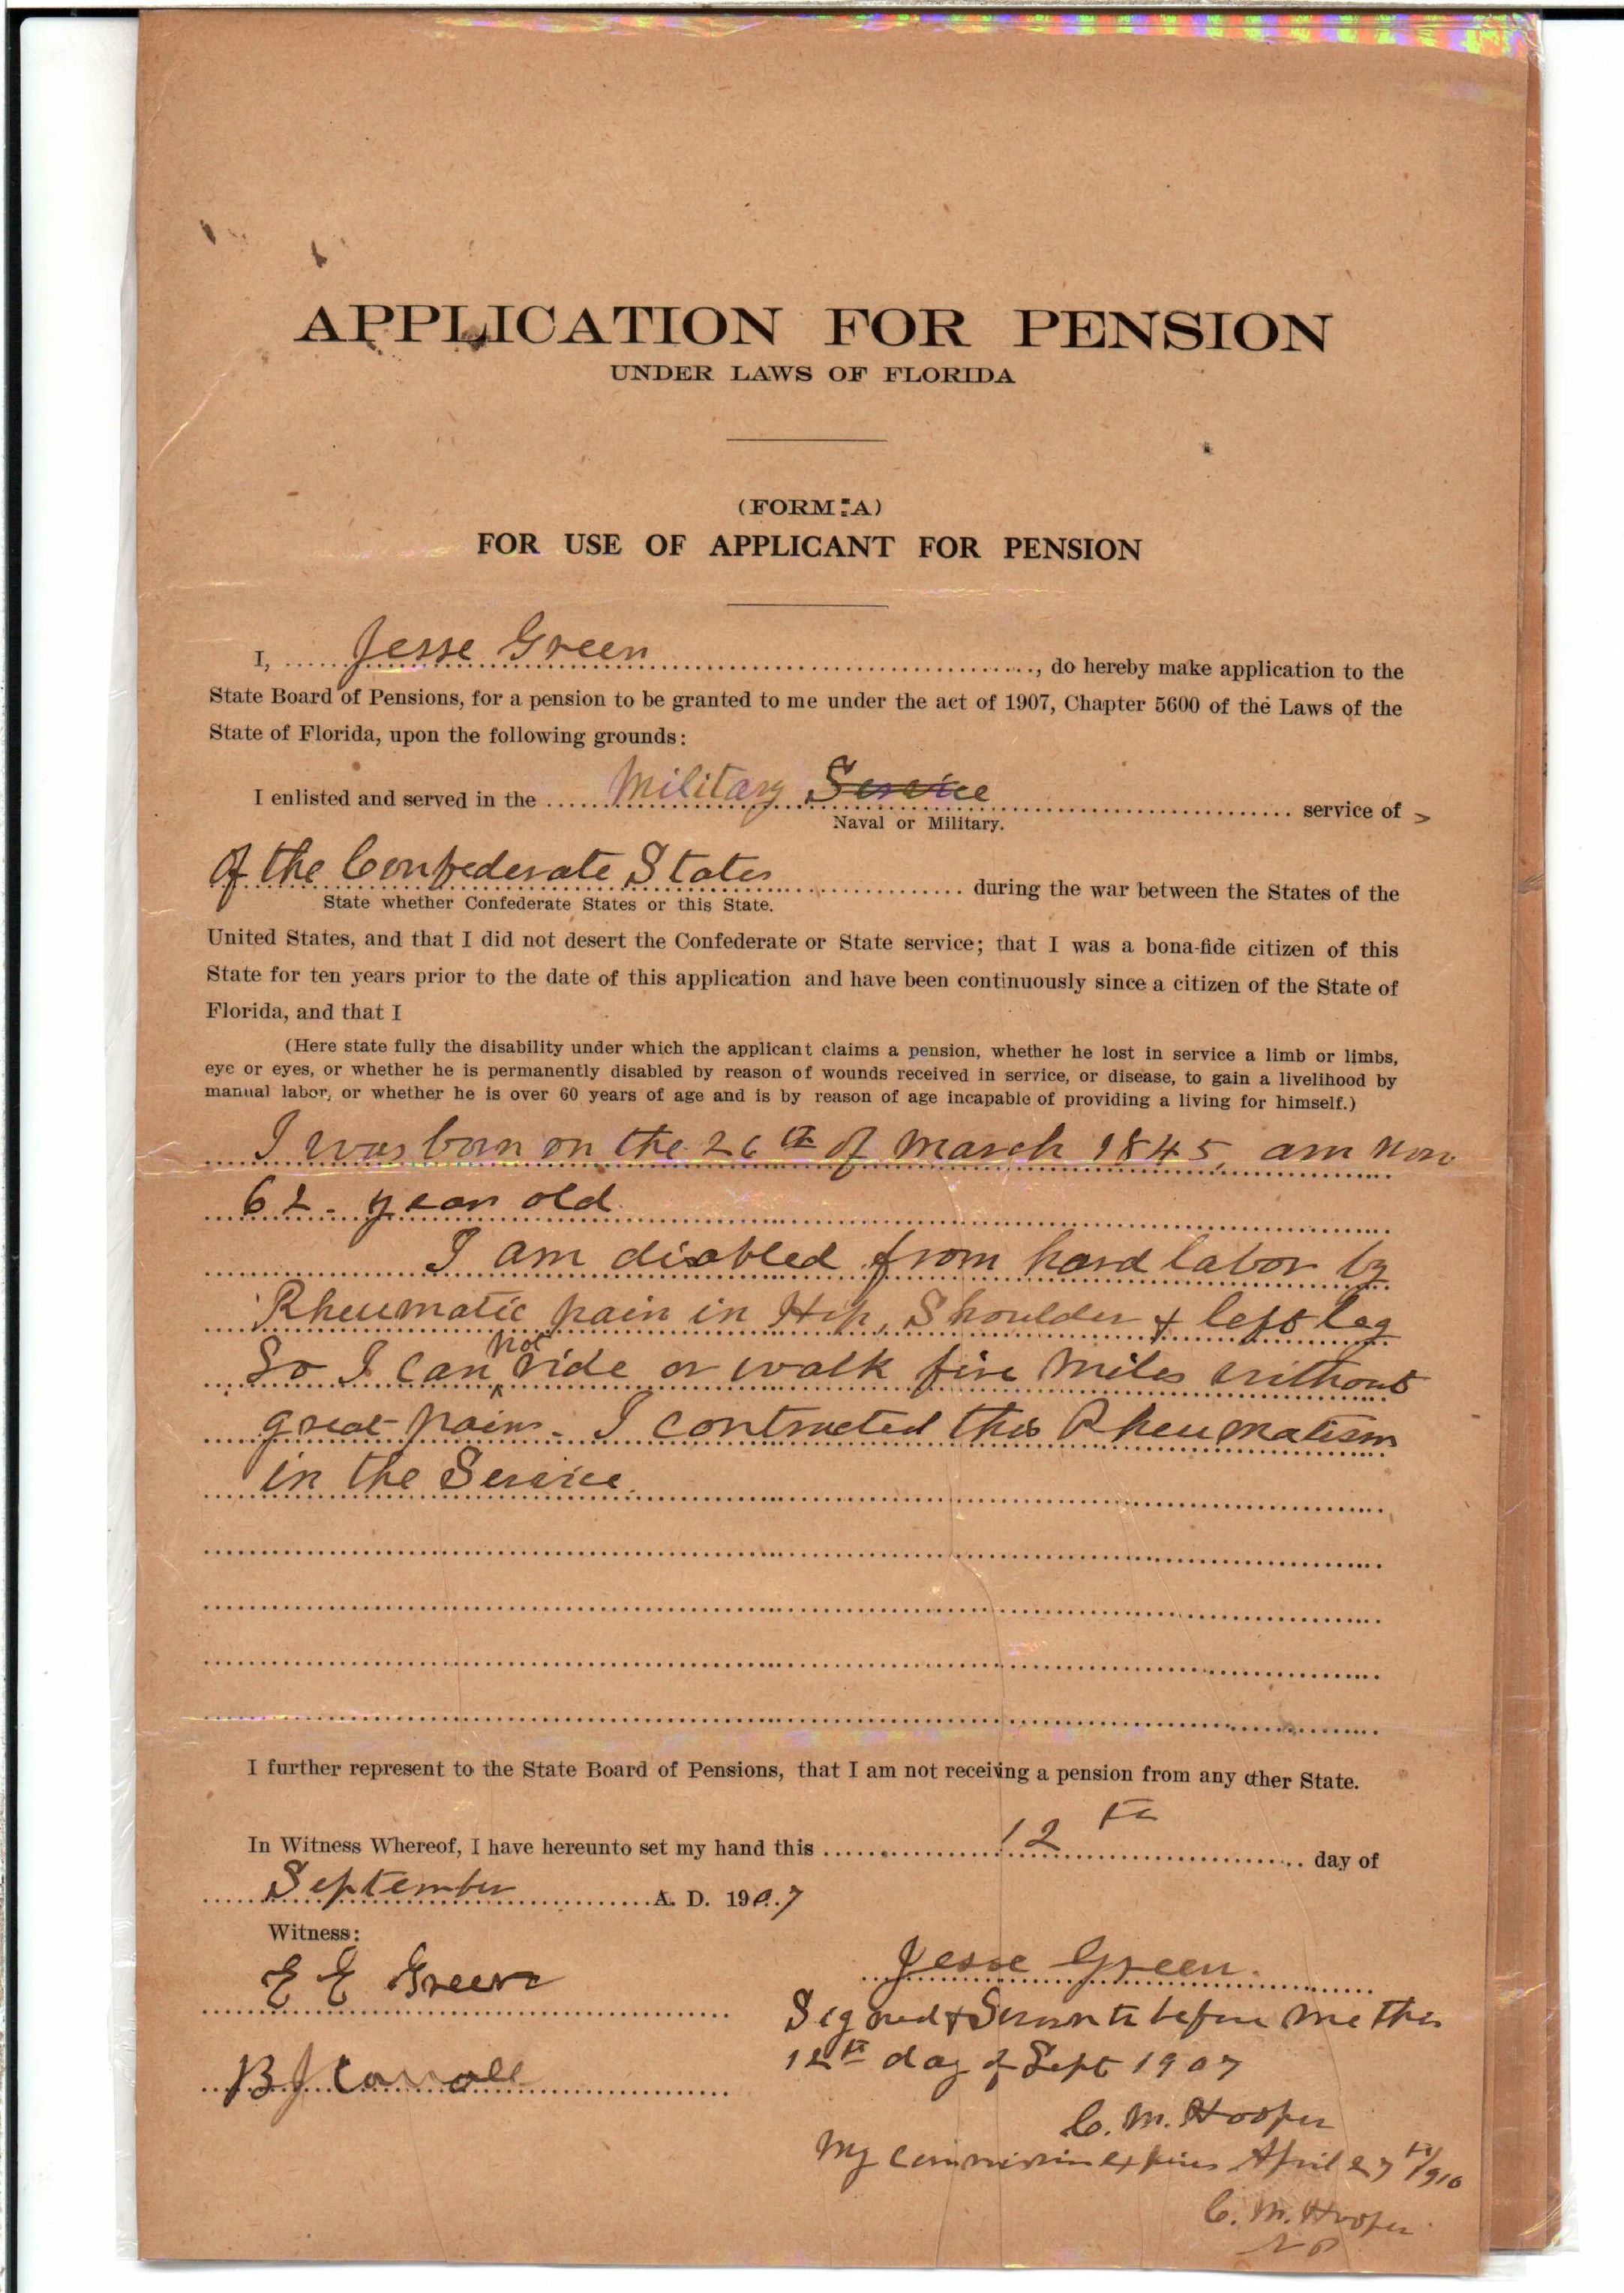 APPLICATION FOR PENSION
UNDER LAWS OF FLORIDA
(FORM A)
FOR USE OF APPLICANT FOR PENSION
I, Jesse Green, do hereby make application to the
State Board of Pensions, for a pension to be granted to me under the act of 1907, Chapter 5600 of the Laws of the
State of Florida, upon the following grounds:
I enlisted and served in the Military Service service of
Naval or Military.
of the Confederate States during the war between the States of the
State whether Confederate States or this State.
United States, and that I did not desert the Confederate or State service; that I was a bona-fide citizen of this
State for ten years prior to the date of this application and have been continuously since a citizen of the State of
Florida, and that I
(Here state fully the disability under which the applicant claims a pension, whether he lost in service a limb or limbs,
eye or eyes, or whether he is permanently disabled by reason of wounds received in service, or disease, to gain a livelihood by
manual labor, or whether he is over 60 years of age and is by reason of age incapable of providing a living for himself.)
I was born on the 26th of March 1845, am now
62 - year old
I am disabled from hard labor by
Rheumatic pain in Hip, Shoulder & left leg
So I can not ride or walk five miles without
great pain - I contracted this Rheumatism
in the Service.
I further represent to the State Board of Pensions, that I am not receiving a pension from any other State.
In Witness Whereof, I have hereunto set my hand this 12th day of
September A. D. 1907
Witness:
E E Green
Jesse Green.
Signed & Sworn to before me this
12th day of Sept 1907
B J Carroll
C. M. Hooper
My commission expires April 27th/1910
C. M. Hooper
N P